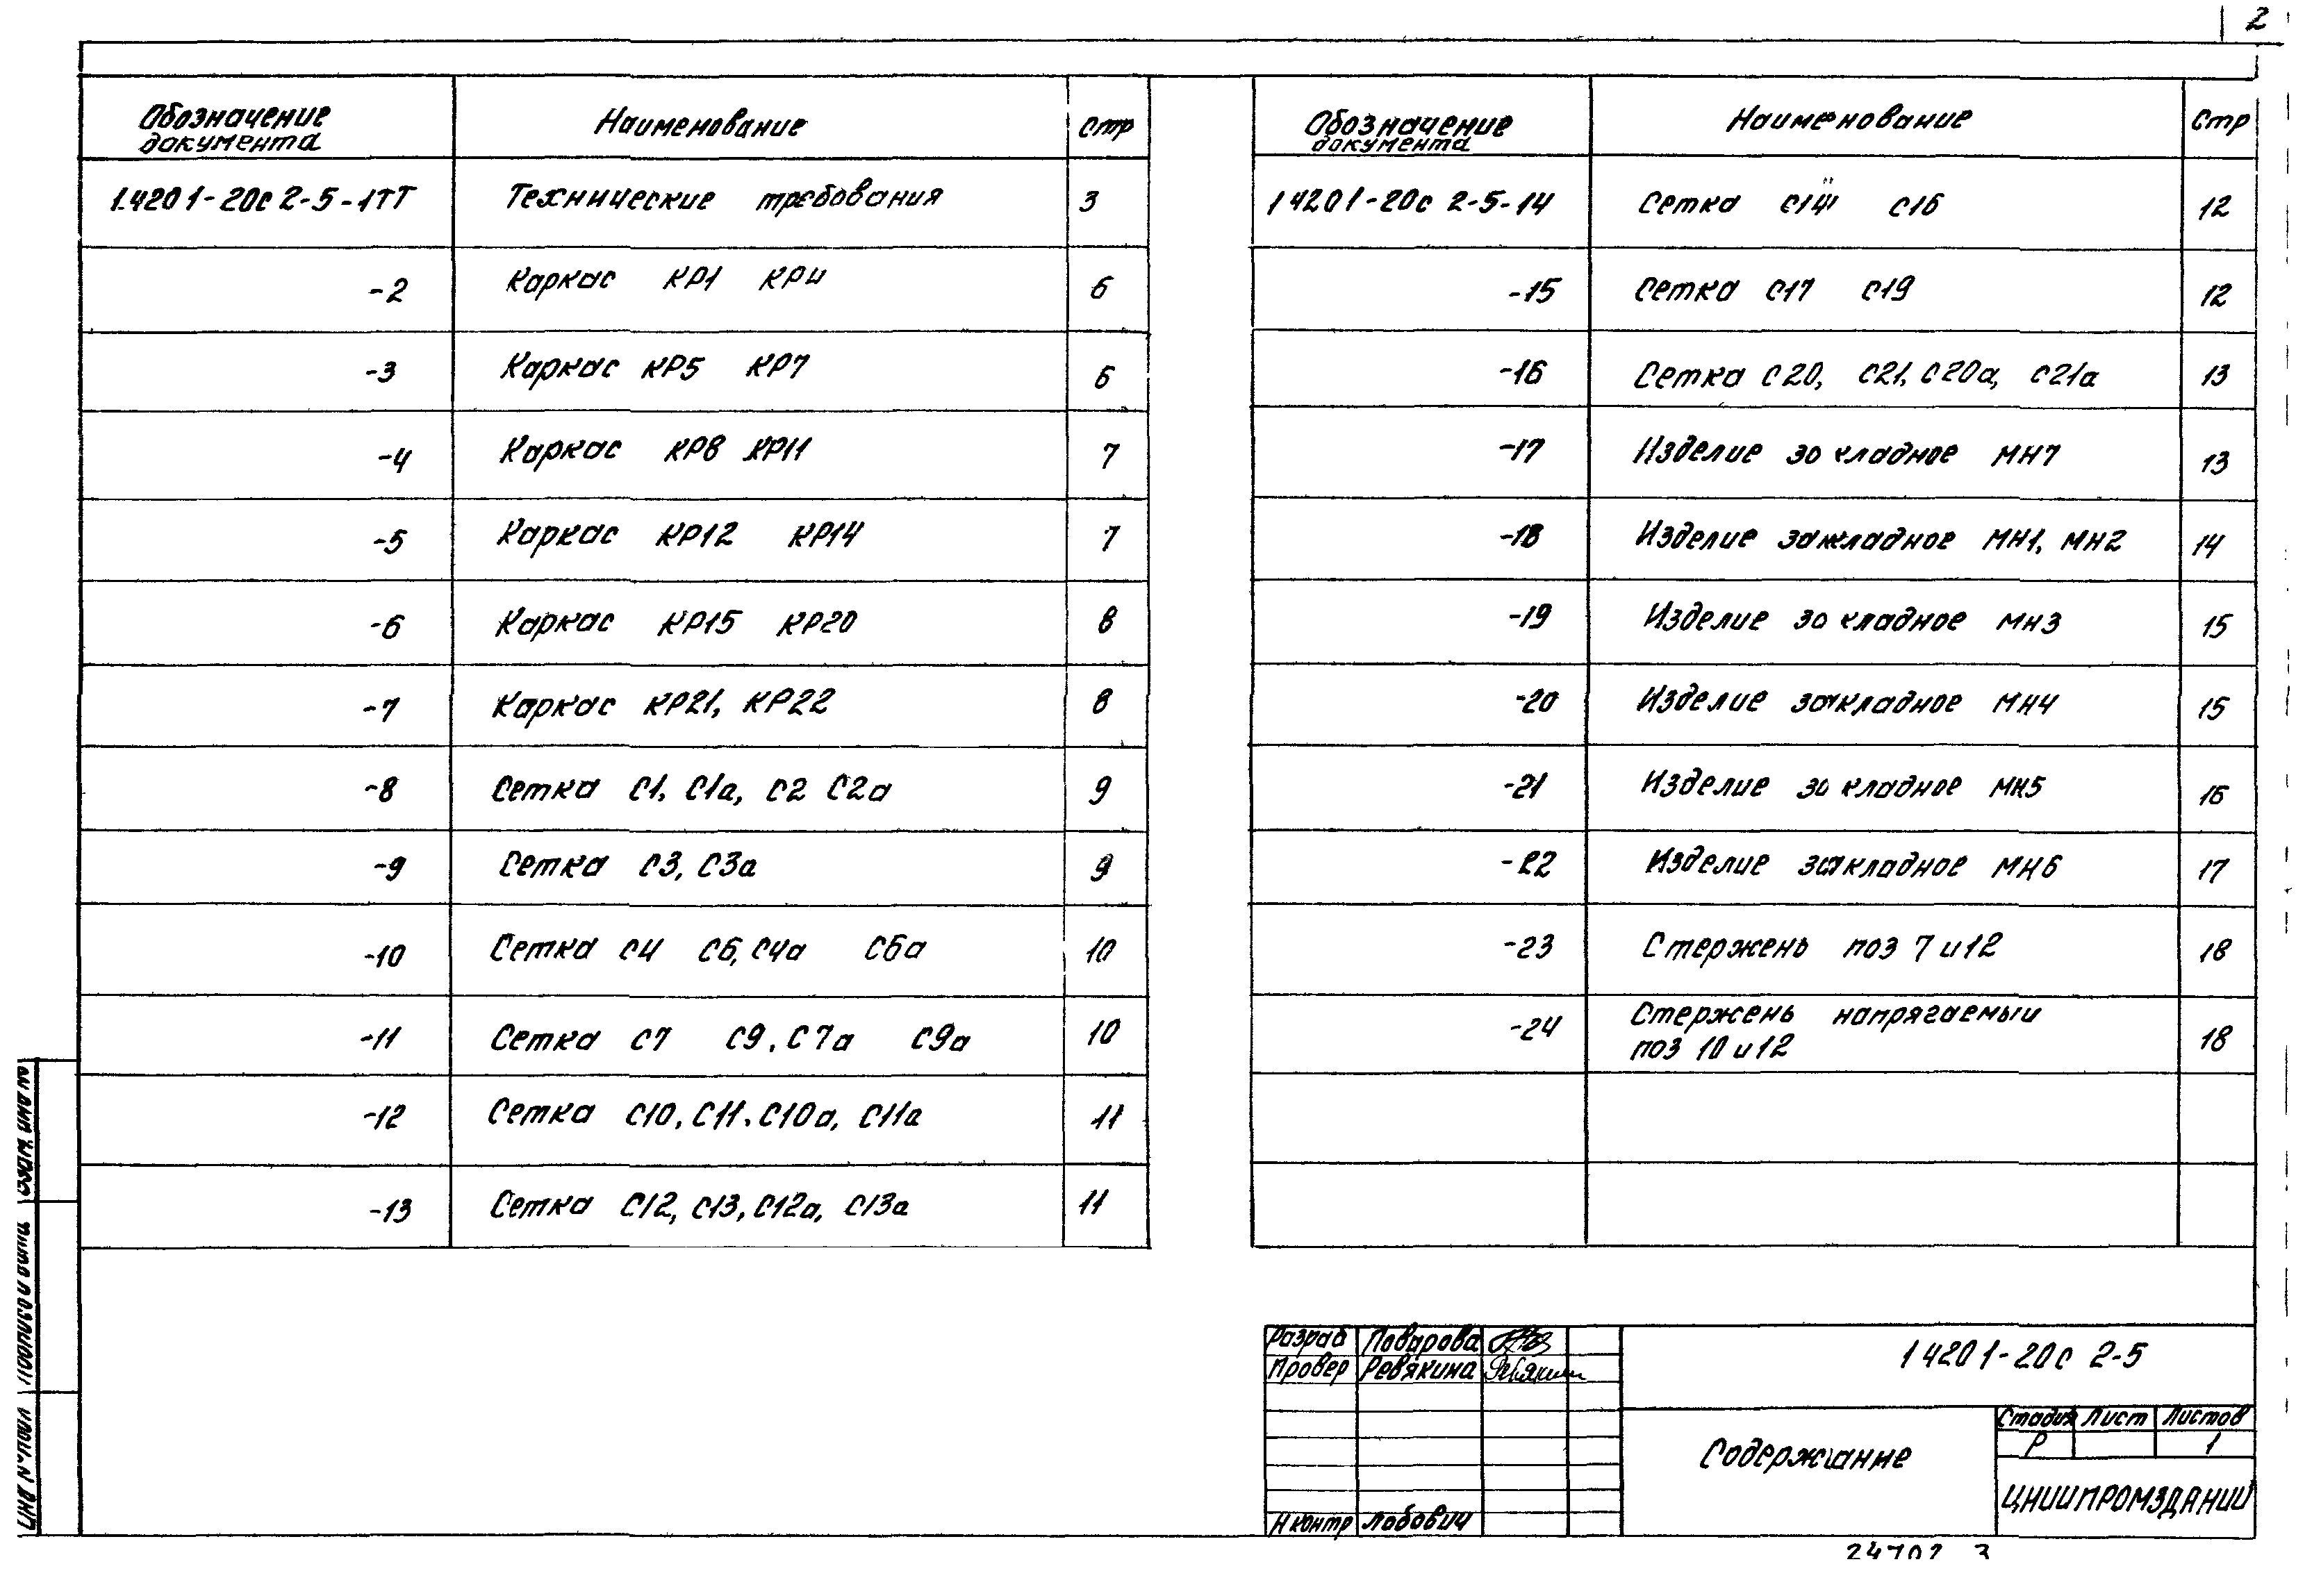 2
Обозначение документа Наименование Стр
1.420 1-20с 2-5-1ТТ Технические требования 3
-2 Каркас КР1 КР4 6
-3 Каркас КР5 КР7 6
-4 Каркас КР8 КР11 7
-5 Каркас КР12 КР14 7
-6 Каркас КР15 КР20 8
-7 Каркас КР21, КР22 8
-8 Сетка С1, С1а, С2 С2а 9
-9 Сетка С3, С3а 9
-10 Сетка С4 С6, С4а С6а 10
-11 Сетка С7 С9, С7а С9а 10
-12 Сетка С10, С11, С10а, С11а 11
-13 Сетка С12, С13, С12а, С13а 11
Обозначение документа Наименование Стр
1 420 1-20с 2-5-14 Сетка С14 С16 12
-15 Сетка С17 С19 12
-16 Сетка С20, С21, С20а, С21а 13
-17 Изделие закладное МН7 13
-18 Изделие закладное МН1, МН2 14
-19 Изделие закладное МН3 15
-20 Изделие закладное МН4 15
-21 Изделие закладное МН5 16
-22 Изделие закладное МН6 17
-23 Стержень поз 7 и 12 18
-24 Стержень напрягаемый
поз 10 и 12 18
Разраб Поварова
Провер Ревякина Ревякин
Н контр Лобович
1 420 1-20с 2-5
Содержание
Стадия Лист Листов
Р 1
ЦНИИПРОМЗДАНИЙ
Инв № подл Подпись и дата Взам инв №
24702 3